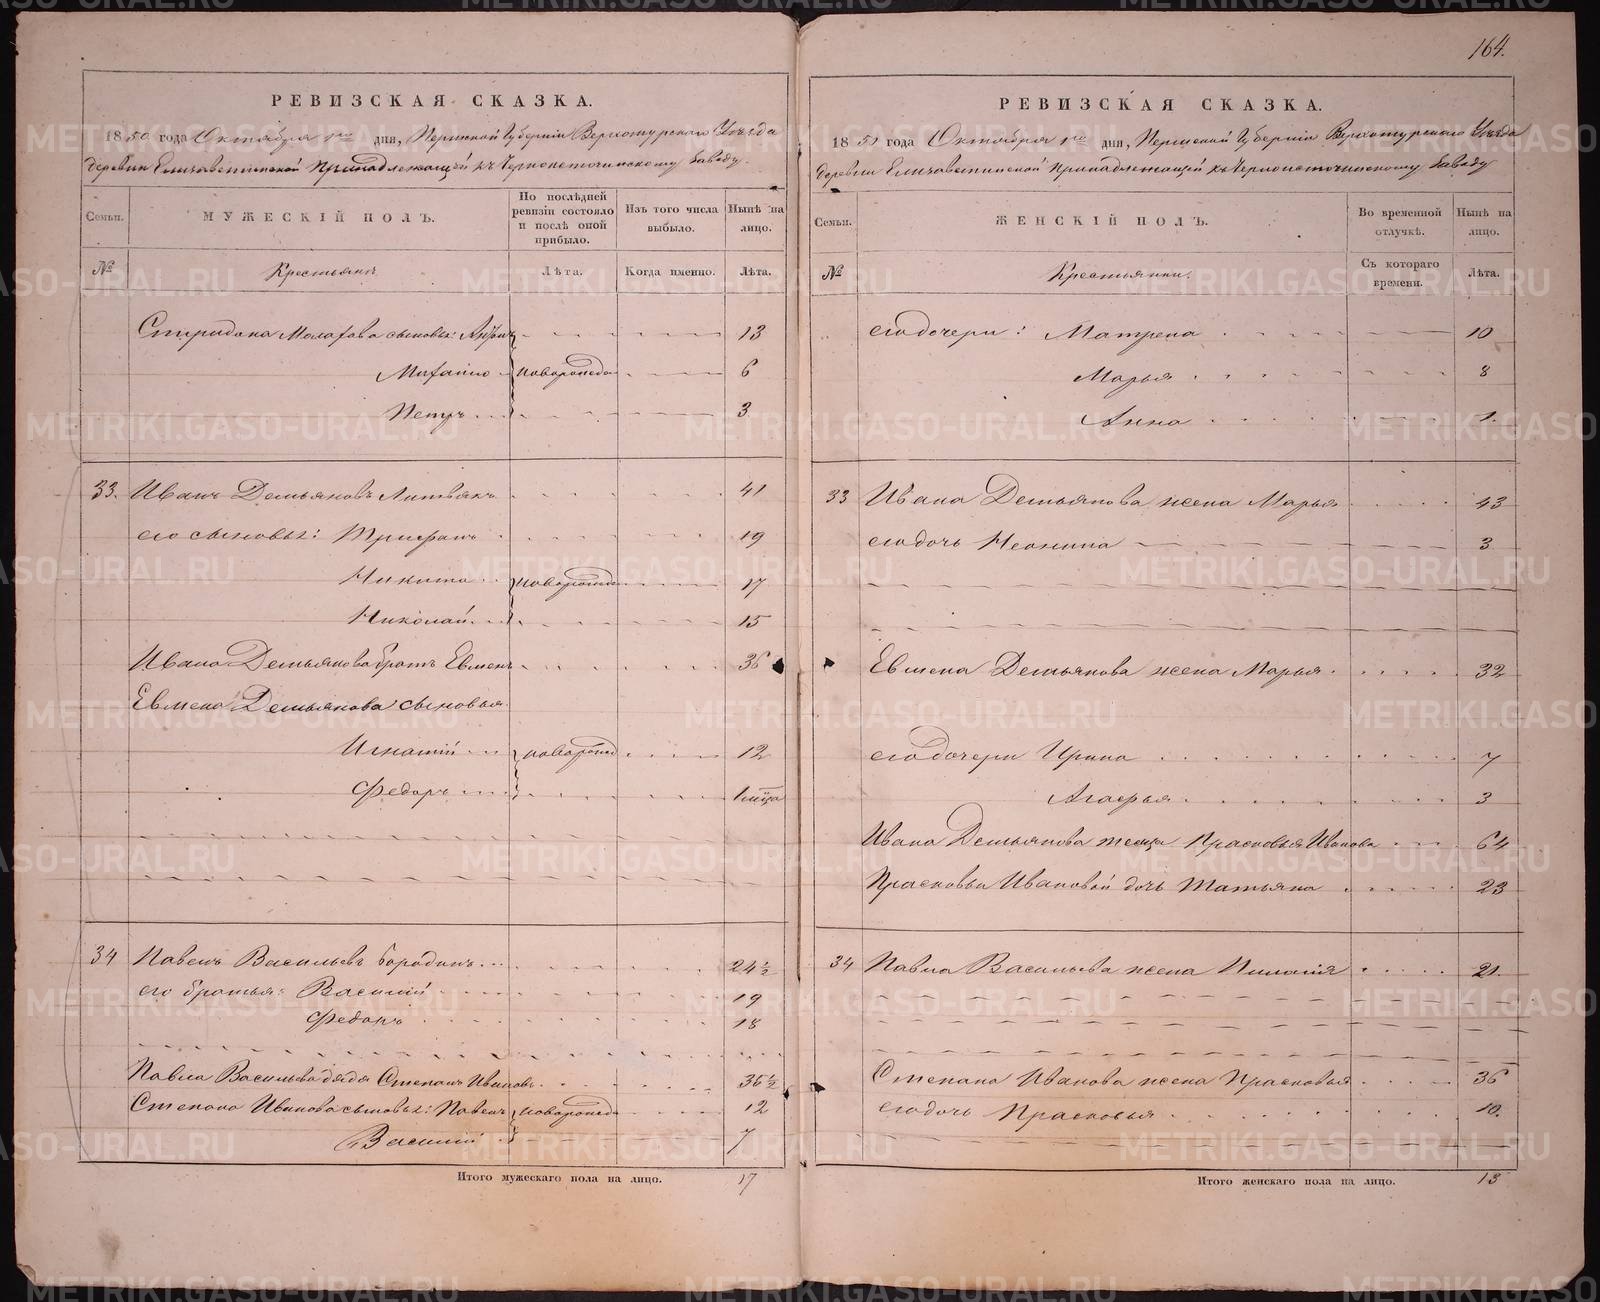 164.
РЕВИЗСКАЯ СКАЗКА.
1850 года Октября 1го дня, Пермской Губернiи Верхотурскаго Уѣзда
деревни Елизаветинской принадлежащей къ Черноисточинскому заводу.
Семьи.
МУЖЕСКІЙ ПОЛЪ.
По послѣдней ревизіи состояло и послѣ оной прибыло.
Изъ того числа выбыло.
Нынѣ на лицо.
№
Крестьянъ
Лѣта.
Когда именно.
Лѣта.
Спиридона сыновья: 13
Михайло новорожд 6
Петръ 3
33. Иванъ Демьяновъ Литвякъ 41
его сыновья: Трифанъ 19
Никита новорожд 17
Николай 15
Ивана Демьянова братъ Евменъ 36
Евмена Демьянова сыновья
Игнатій новорожд 12
Федоръ 1 мѣца
34 Павелъ Васильевъ Бородинъ 24½
его братья: Василій 19
Федотъ 18
Павла Васильева дядя Степанъ Ивановъ 36½
Степана Иванова сыновья: Павелъ новорожд 12
Василій 7
Итого мужескаго пола на лицо. 17
РЕВИЗСКАЯ СКАЗКА.
1850 года Октября 1го дня, Пермской Губернiи Верхотурскаго Уѣзда
деревни Елизаветинской принадлежащей къ Черноисточинскому заводу
Семьи.
ЖЕНСКІЙ ПОЛЪ.
Во временной отлучкѣ.
Нынѣ на лицо.
№
Крестьянки.
Съ котораго времени.
Лѣта.
его дочери: Матрена 10
Марья 8
Анна 1.
33 Ивана Демьянова жена Марья 43
его дочь Неонила 3
Евмена Демьянова жена Марья 32
его дочери Ирина 7
Агафья 3
Ивана Демьянова Прасковья Иванова 64
Прасковьи Ивановой дочь Татьяна 23
34 Павла Васильева жена Пилагія 21.
Степана Иванова жена Прасковья 36
его дочь Прасковья 10.
Итого женскаго пола на лицо. 13
METRIKI.GASO-URAL.RU